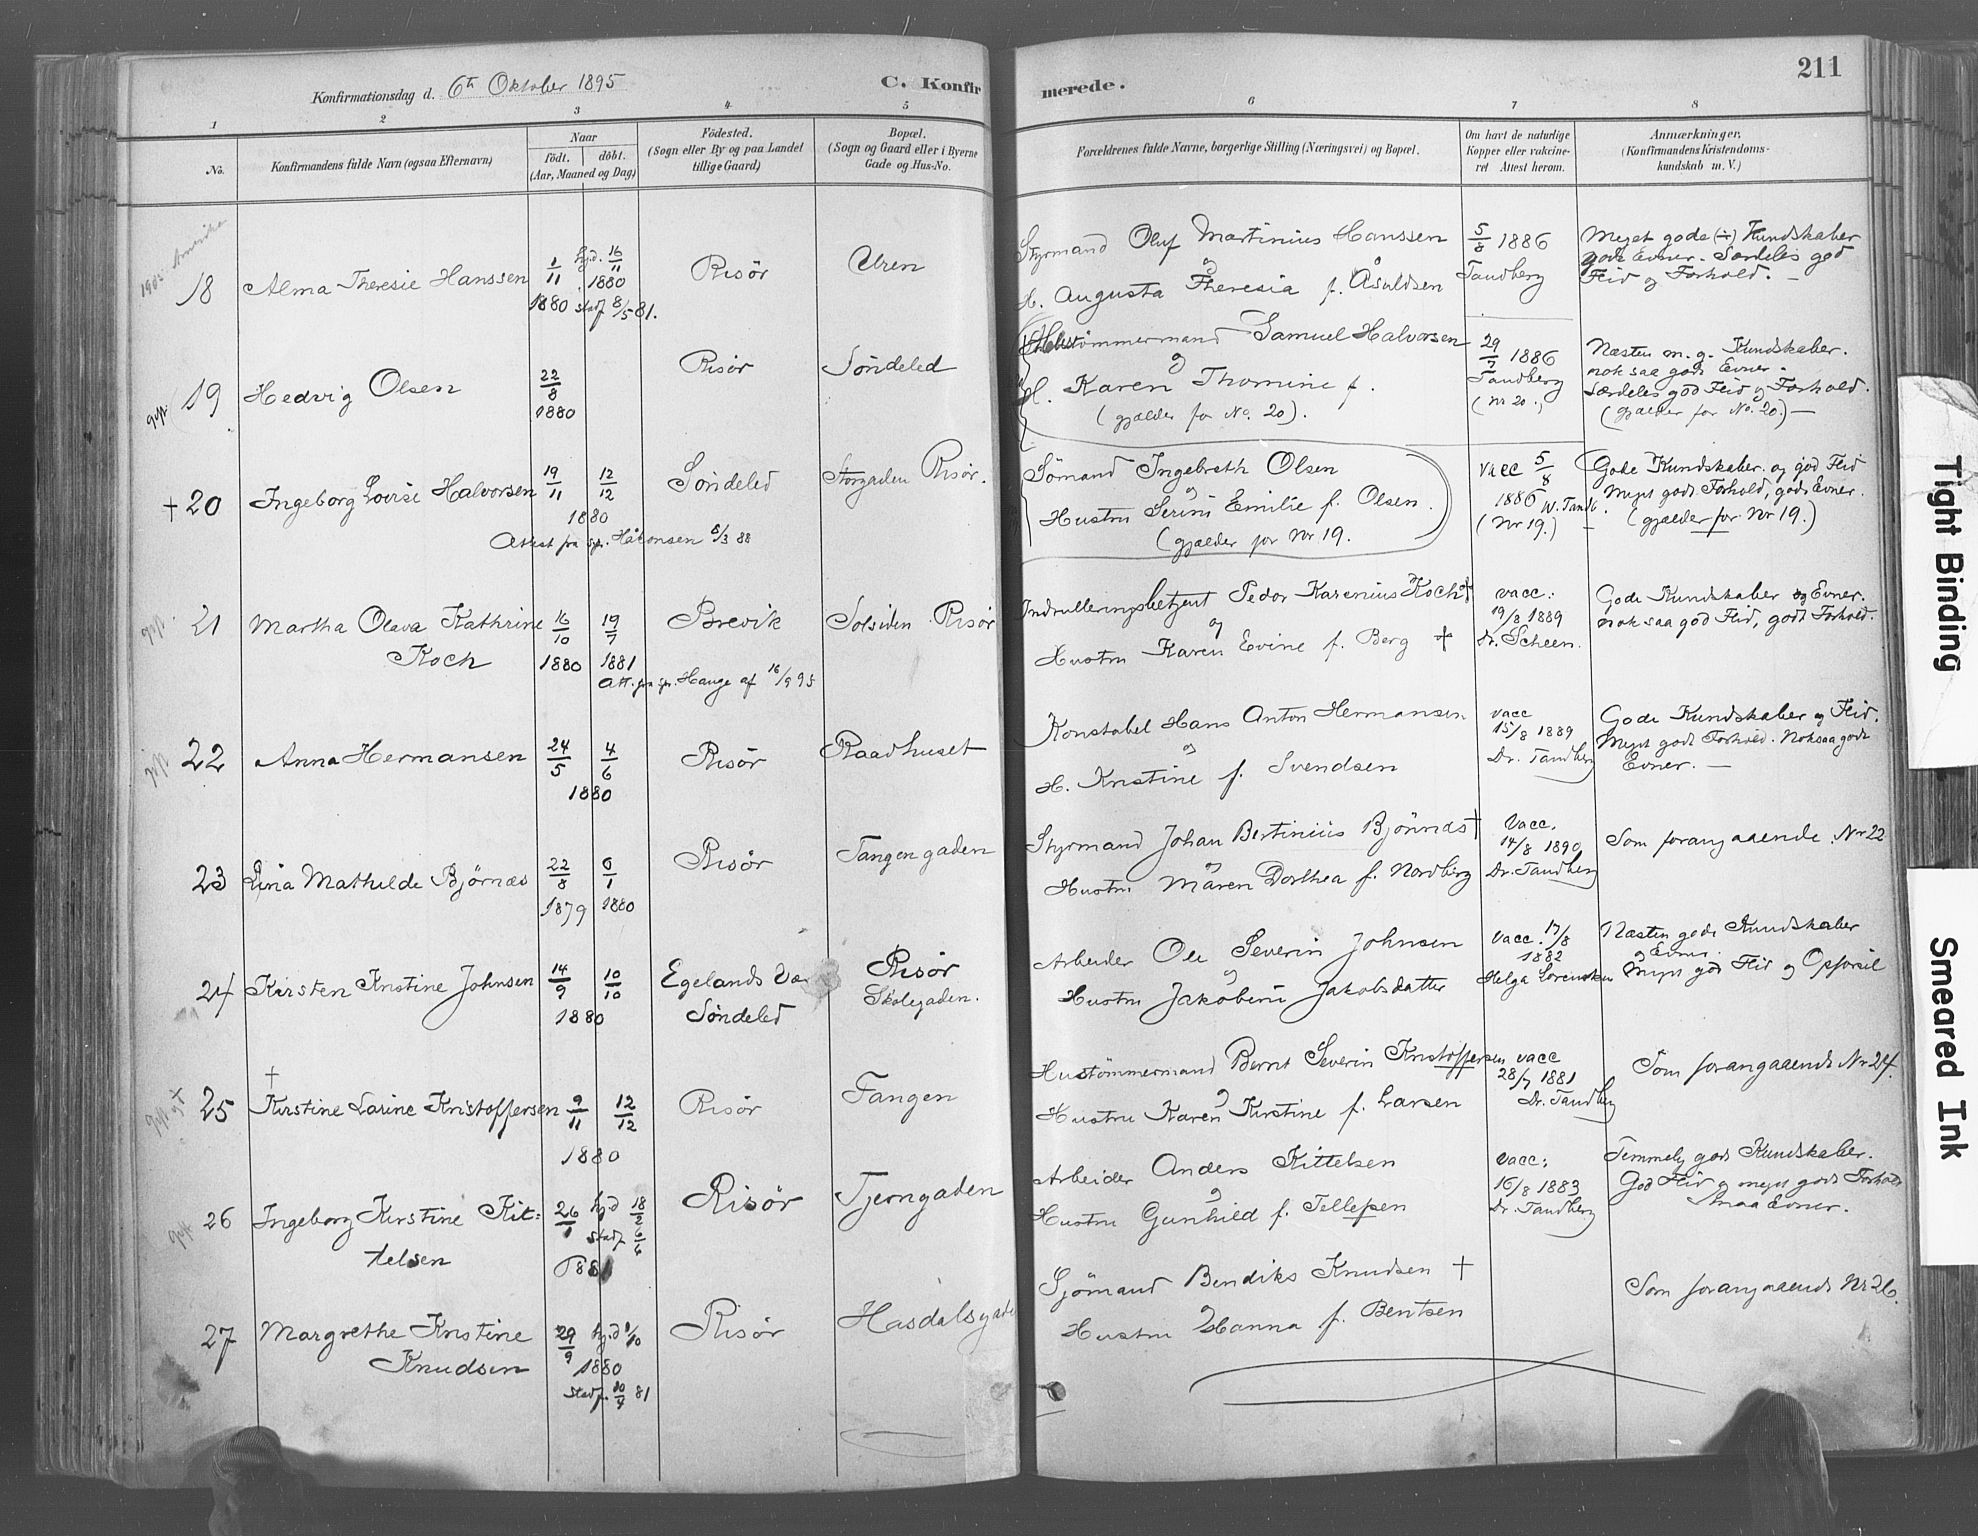 211
Konfirmationsdag d. 6te Oktober 1895
C. Konfirmerede.
1 2 3 4 5 6 7 8
No.
Konfirmandens fulde Navn (ogsaa Efternavn)
Naar
födt. döbt.
(Aar, Maaned og Dag)
Födested.
(Sogn eller By og paa Landet
tillige Gaard)
Bopæl.
(Sogn og Gaard eller i Byerne
Gade og Hus-No.
Forældrenes fulde Navne, borgerlige Stilling (Næringsvei) og Bopæl.
Om havt de naturlige
Kopper eller vakcine-
ret Attest herom.
Anmærkninger,
(Konfirmandens Kristendoms-
kundskab m. V.)
1905 Amerika
18 Alma Theresie Hanssen
1/11 1880
hjd. 16/11 1880
stadf 8/5 81.
Risör
Uren
Styrmand Oluf Martinius Hanssen
og
H. Augusta Theresia f. Åsuldsen
5/8 1886
Tandberg
Meget gode Kundskaber
gode Evner. Særdeles god
Flid og Forhold. —
gift
19 Hedvig Olsen
22/8
1880
Risör
Söndeled
Hustömmermand Samuel Halvorsen
og
H. Karen Thomine f.
(gjælder for No. 20).
29/7 1886
Tandberg
(Nr 20.)
Næsten m. g. Kundskaber.
nok saa gode Evner.
Særdeles god Flid og Forhold.
(gjælder for No. 20.) —
+ 20 Ingeborg Lovise Halvorsen
19/11 12/12
1880
Attest fra spr. Håkonsen 8/3 88
Söndeled
Storgaden Risör.
Sömand Ingebreth Olsen
og
Hustru Serine Emilie f. Olsen.
(gjælder for Nr 19.
vacc 5/8
1886 W. Tandb.
(Nr 19.)
Gode Kundskaber og god Flid
Meget godt Forhold, gode Evner.
(gjælder for Nr 19.)
gift.
21 Martha Olava Kathrine
Koch
16/10 19/7
1880 1881
Att. fra spr. Hauge af 16/9 95
Brevik
Solsiden Risör
Indrulleringsbetjent Peder Karenius Koch †
og
Hustru Karen Evine f. Berg †
vacc:
19/8 1889
Dr. Scheen.
Gode Kundskaber og Evner.
nok saa god Flid, godt Forhold.
gift
22 Anna Hermansen
24/5 4/6
1880
Risör
Raadhuset
Konstabel Hans Anton Hermansen
og
H. Kristine f. Svendsen
vacc
15/8 1889
Dr. Tandberg
Gode Kundskaber og Flid.
Meget godt Forhold. Noksaa gode
Evner. —
23 Lina Mathilde Bjørnæs
22/8 6/1
1879 1880
Risör
Tangengaden
Styrmand Johan Bertinius Bjönnæs †
og
Hustru Maren Dorthea f. Nordberg
Vacc.
14/8 1890
Dr. Tandberg
Som forangaaende Nr 22
24 Kirsten Kristine Johnsen
14/9 10/10
1880
Egelands Væ
Söndeled
Risör
Skolegaden.
Arbeider Ole Severin Johnsen
og
Hustru Jakobine Jakobsdatter
Vacc. 17/8
1882
Helga Lorentzen
Næsten gode Kundskaber
og Evner.
Meget god Flid og Opførsel
gift
†
25 Kirstine Larine Kristoffersen
9/11 12/12
1880
Risör
Tangen
Hustömmermand Bernt Severin Kristoffersen
og
Hustru Karen Kirstine f. Larsen
vacc
28/7 1881
Dr. Tandberg
Som forangaaende Nr 24.
gift
26 Ingeborg Kirstine Kit=
telsen
26/1
1881
hjd 18/2
stadf 6/6
Risör
Tjerngaden
Arbeider Anders Kittelsen
og
Hustru Gunhild f. Tellefsen
vacc:
16/8 1883
Dr. Tandberg
Temmelig gode Kundskaber.
God Flid og meget godt Forhold
Smaa Evner.
27 Margrethe Kristine
Knudsen
29/9 hjd 1/10
1880
Stadf. 10/7 81
Risör
Hasdalsgaden
Sjömand Bendiks Knudsen †
og
Hustru Hanna f. Bentsen
Som forangaaende Nr 26.
Tight Binding
Smeared Ink